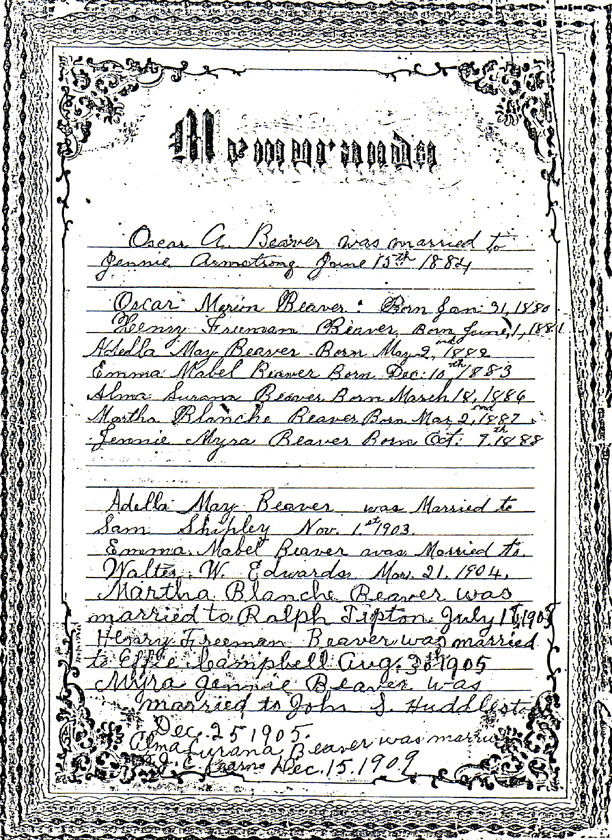 Memoranda
Oscar A. Beaver was married to
Jennie Armstrong June 15th 1884
Oscar Merion Beaver. Born Jan. 31, 1880
Henry Freeman Beaver, Born June, 1, 1881
Adella May Beaver. Born May 2, nd 1882
Emma Mabel Beaver Born Dec. 10th 1883
Alma Surana Beaver Born March 18, 1886
Martha Blanche Beaver Born Mar 2, nd 1887
Jennie Myra Beaver Born Oct. 7th 1888
Adella May Beaver was Married to
Sam Shipley Nov. 1.st 1903.
Emma Mabel Beaver was Married to
Walter. W. Edwards Mar. 21. 1904.
Martha Blanche Beaver was
married to Ralph Tipton July 1905
Henry Freeman Beaver was married
to Effie Campbell Aug. 1905
Myra Jennie Beaver was
married to John S. Huddlest
Dec. 25 1905.
Alma Surana Beaver was marri
Dec. 15. 1909